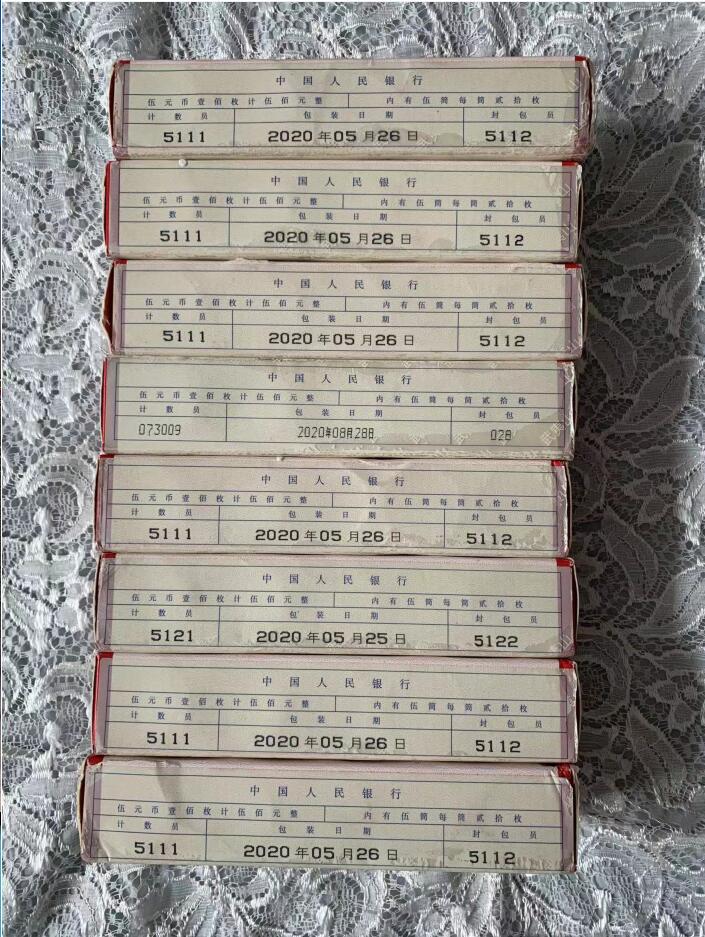 中国人民银行
伍元币壹佰枚计伍佰元整 内有伍筒每筒贰拾枚
计数员 包装日期 封包员
5111 2020年05月26日 5112
中国人民银行
伍元币壹佰枚计伍佰元整 内有伍筒每筒贰拾枚
计数员 包装日期 封包员
5111 2020年05月26日 5112
中国人民银行
伍元币壹佰枚计伍佰元整 内有伍筒每筒贰拾枚
计数员 包装日期 封包员
5111 2020年05月26日 5112
中国人民银行
伍元币壹佰枚计伍佰元整 内有伍筒每筒贰拾枚
计数员 包装日期 封包员
073009 2020年08月28日 028
中国人民银行
伍元币壹佰枚计伍佰元整 内有伍筒每筒贰拾枚
计数员 包装日期 封包员
5111 2020年05月26日 5112
中国人民银行
伍元币壹佰枚计伍佰元整 内有伍筒每筒贰拾枚
计数员 包装日期 封包员
5121 2020年05月25日 5122
中国人民银行
伍元币壹佰枚计伍佰元整 内有伍筒每筒贰拾枚
计数员 包装日期 封包员
5111 2020年05月26日 5112
中国人民银行
伍元币壹佰枚计伍佰元整 内有伍筒每筒贰拾枚
计数员 包装日期 封包员
5111 2020年05月26日 5112